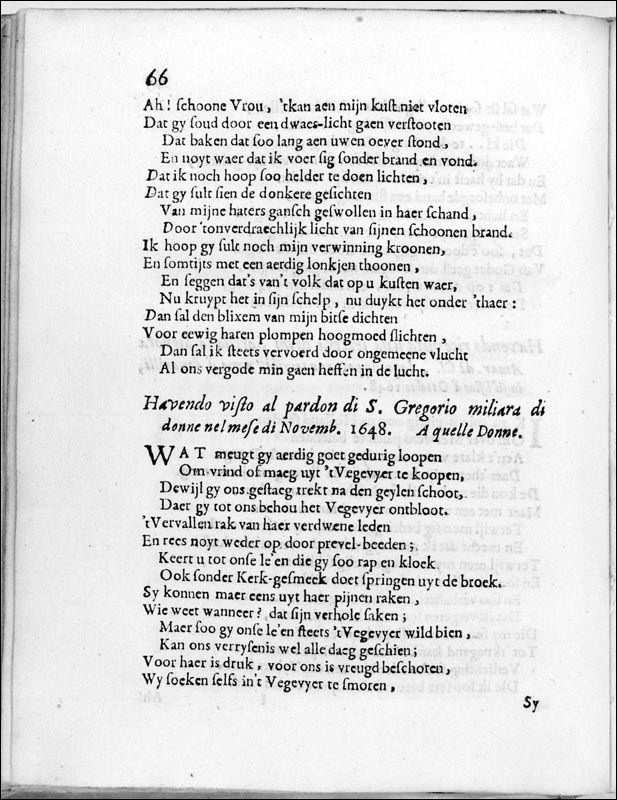 66
Ah! schoone Vrou, 'tkan aen mijn kust niet vloten
Dat gy soud door een dwaes-licht gaen verstooten
Dat baken dat soo lang aen uwen oever stond,
En noyt waer dat ik voer sig sonder brand en vond.
Dat ik noch hoop soo helder te doen lichten,
Dat gy sult sien de donkere gesichten
Van mijne haters gansch geswollen in haer schand,
Door 'tonverdraechlijk licht van sijnen schoonen brand.
Ik hoop gy sult noch mijn verwinning kroonen,
En somtijts met een aerdig lonkjen thoonen,
En seggen dat's van't volk dat op u kusten waer,
Nu kruypt het in sijn schelp, nu duykt het onder 'thaer:
Dan sal den blixem van mijn bitse dichten
Voor eewig haren plompen hoogmoed slichten,
Dan sal ik steets vervoerd door ongemeene vlucht
Al ons vergode min gaen heffen in de lucht.
Havendo visto al pardon di S. Gregorio miliara di
donne nel mese di Novemb. 1648. A quelle Donne.
WAT meugt gy aerdig goet gedurig loopen
Om vrind of maeg uyt 'tVegevyer te koopen,
Dewijl gy ons gestaeg trekt na den geylen schoot,
Daer gy tot ons behou het Vegevyer ontbloot.
'tVervallen rak van haer verdwene leden
En rees noyt weder op door prevel-beeden;
Keert u tot onse le'en die gy soo rap en kloek
Ook sonder Kerk-gesmeek doet springen uyt de broek.
Sy konnen maer eens uyt haer pijnen raken,
Wie weet wanneer? dat sijn verhole saken;
Maer soo gy onse le'en steets 'tVegevyer wild bien,
Kan ons verrysenis wel alle daeg geschien;
Voor haer is druk, voor ons is vreugd beschoren,
Wy soeken selfs in't Vegevyer te smoren,
Sy